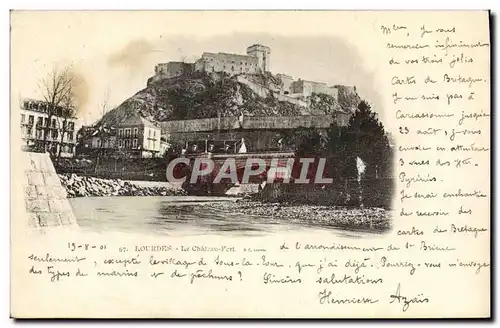 Mme, Je vous
remercie infiniment
de vos trois jolies
Cartes de Bretagne.
Je ne suis pas à
Carcassonne jusqu'au
23 août, je vous
envoie en attendant
3 vues des Htes
Pyrénées.
Je serai enchantée
de recevoir des
cartes de Bretagne
CPARAMA
13-8-01 97. LOURDES - Le Château-Fort B.C. de l'arrondisement de St Brieuc
seulement, excepté le village de Sous-la-Tour, que j'ai déjà. Pourrez-vous m'envoyer
des types de marins et de pêcheurs? Sincères salutations
Henriette Azaïs